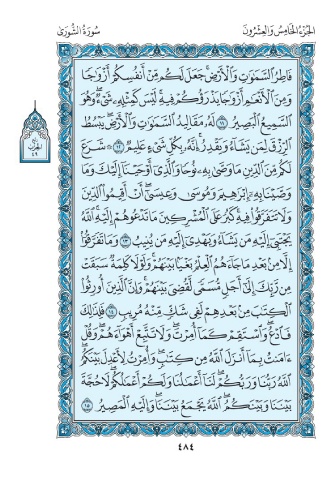 الجزء الخامس والعشرون
سورة الشورى
فَاطِرُ السَّمَٰوَٰتِ وَالْأَرْضِ جَعَلَ لَكُم مِّنْ أَنفُسِكُمْ أَزْوَٰجًا
وَمِنَ الْأَنْعَٰمِ أَزْوَٰجًا يَذْرَؤُكُمْ فِيهِ لَيْسَ كَمِثْلِهِۦ شَىْءٌ وَهُوَ
السَّمِيعُ الْبَصِيرُ ١١ لَهُۥ مَقَالِيدُ السَّمَٰوَٰتِ وَالْأَرْضِ يَبْسُطُ
الرِّزْقَ لِمَن يَشَآءُ وَيَقْدِرُ إِنَّهُۥ بِكُلِّ شَىْءٍ عَلِيمٌ ١٢ شَرَعَ
لَكُم مِّنَ الدِّينِ مَا وَصَّىٰ بِهِۦ نُوحًا وَالَّذِىٓ أَوْحَيْنَآ إِلَيْكَ وَمَا
وَصَّيْنَا بِهِۦٓ إِبْرَٰهِيمَ وَمُوسَىٰ وَعِيسَىٰٓ أَنْ أَقِيمُوا الدِّينَ
وَلَا تَتَفَرَّقُوا فِيهِ كَبُرَ عَلَى الْمُشْرِكِينَ مَا تَدْعُوهُمْ إِلَيْهِ اللَّهُ
يَجْتَبِىٓ إِلَيْهِ مَن يَشَآءُ وَيَهْدِىٓ إِلَيْهِ مَن يُنِيبُ ١٣ وَمَا تَفَرَّقُوٓا
إِلَّا مِن بَعْدِ مَا جَآءَهُمُ الْعِلْمُ بَغْيًا بَيْنَهُمْ وَلَوْلَا كَلِمَةٌ سَبَقَتْ
مِن رَّبِّكَ إِلَىٰٓ أَجَلٍ مُّسَمًّى لَّقُضِىَ بَيْنَهُمْ وَإِنَّ الَّذِينَ أُورِثُوا
الْكِتَٰبَ مِن بَعْدِهِمْ لَفِى شَكٍّ مِّنْهُ مُرِيبٍ ١٤ فَلِذَٰلِكَ
فَادْعُ وَاسْتَقِمْ كَمَآ أُمِرْتَ وَلَا تَتَّبِعْ أَهْوَآءَهُمْ وَقُلْ
ءَامَنتُ بِمَآ أَنزَلَ اللَّهُ مِن كِتَٰبٍ وَأُمِرْتُ لِأَعْدِلَ بَيْنَكُمُ
اللَّهُ رَبُّنَا وَرَبُّكُمْ لَنَآ أَعْمَٰلُنَا وَلَكُمْ أَعْمَٰلُكُمْ لَا حُجَّةَ
بَيْنَنَا وَبَيْنَكُمُ اللَّهُ يَجْمَعُ بَيْنَنَا وَإِلَيْهِ الْمَصِيرُ ١٥
٤٨٤